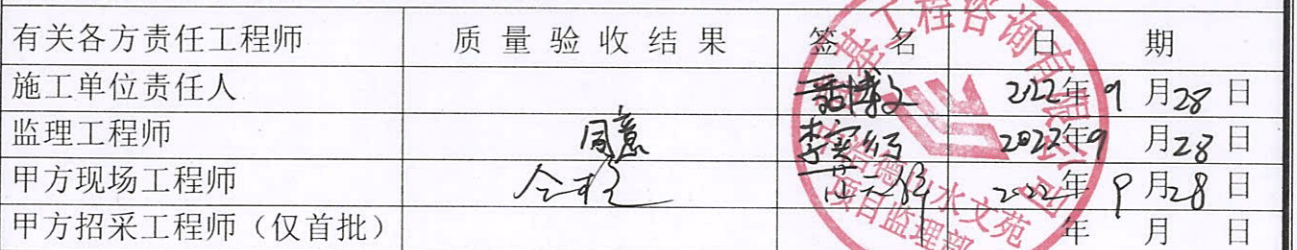 有关各方责任工程师 质量验收结果 签名 日期
施工单位责任人 博文 2022年9月28日
监理工程师 同意 李 2022年9月28日
甲方现场工程师 合格 2022年9月28日
甲方招采工程师（仅首批） 年月日
基工程咨询有限公司
浩德山水文苑
项目监理部